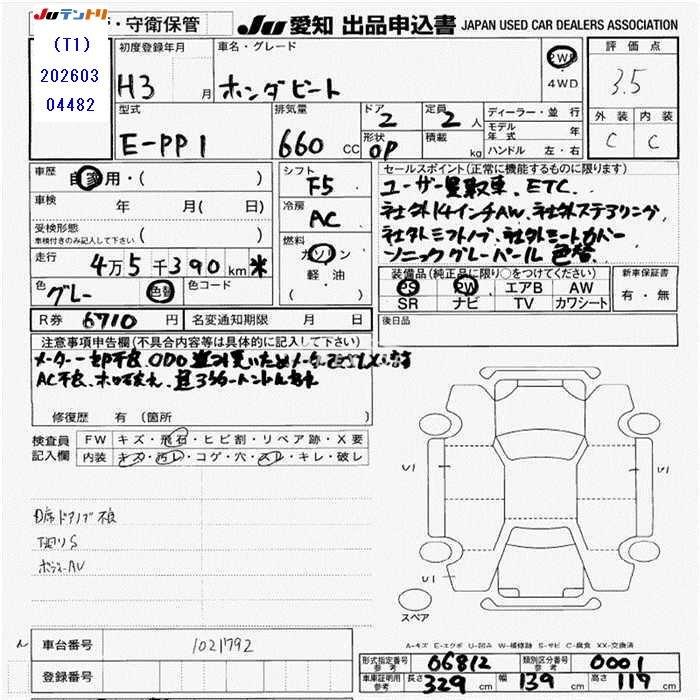 JUテントリ ・守衛保管 JU 愛知 出品申込書 JAPAN USED CAR DEALERS ASSOCIATION
(T1)
202603
04482
初度登録年月 車名・グレード 2WD 4WD 評価点
H3 月 ホンダビート 3.5
型式 排気量 ドア 2 定員 2 人 ディーラー・並行 外装 内装
E-PP1 660 CC 形状 OP 積載 kg モデル年式 年 C C
ハンドル 左・右
車歴 自家用・( ) シフト F5 セールスポイント(正常に機能するものに限ります)
ユーザー買取車、ETC、
車検 年 月( 日) 冷房 AC 社外14インチAW、社外ステアリング、
受検形態 車検付きのみ記入して下さい ( ) 社外シフトノブ、社外シートカバー
走行 4万5千390km 燃料 ガソリン 軽油 ( ) ソニックグレーパール 色替
色 グレー 色替 色コード 装備品(純正品に限り○をつけてください) 新車保証書
PS PW エアB AW 有・無
SR ナビ TV カワシート
R券 6710 円 名変通知期限 月 日 後日品
注意事項申告欄(不具合内容等は具体的に記入して下さい)
メーター一部不良、ODO
AC不良、
修復歴 有 (箇所 )
検査員記入欄 FW キズ・飛石・ヒビ割・リペア跡・X要
内装 キズ・汚レ・コゲ・穴・スレ・キレ・破レ
D席ドアノブ不良
下廻りS
ボディーAU
U1 U1
U1
スペア
A-キズ E-エクボ U-凹み W-補修跡 S-サビ C-腐食 XX-交換済
車台番号 1021792
登録番号
形式指定番号 参考 06812 類別区分番号 参考 0001
車庫証明用 参考 長さ 329 cm 幅 139 cm 高さ 117 cm